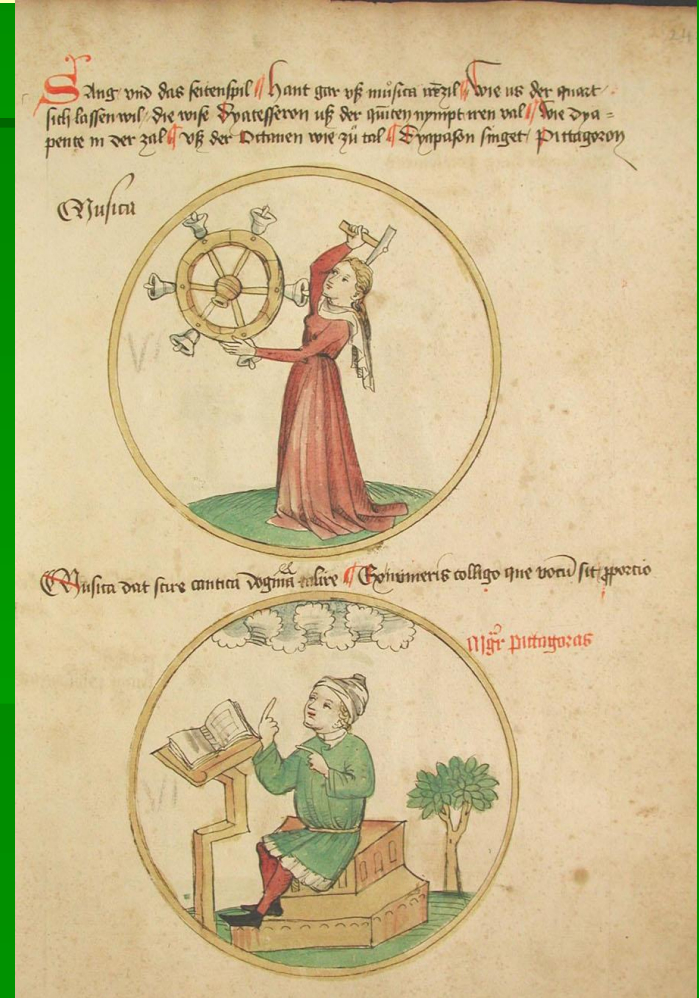 Sang vnd das seitenspil Hant gar vß můsica zil Wie us der quart
sich lassen wil die wise Dyatesseron uß der quiten nympt iren val Wie dya=
pente in der zal vß der Octauen wie zů tal Dyapason singet Pittagoron
Musica
Musica dat scire cantica dogma Ex numeris colligo que vocū sit
Mgr pittagoras
VI
VI
24